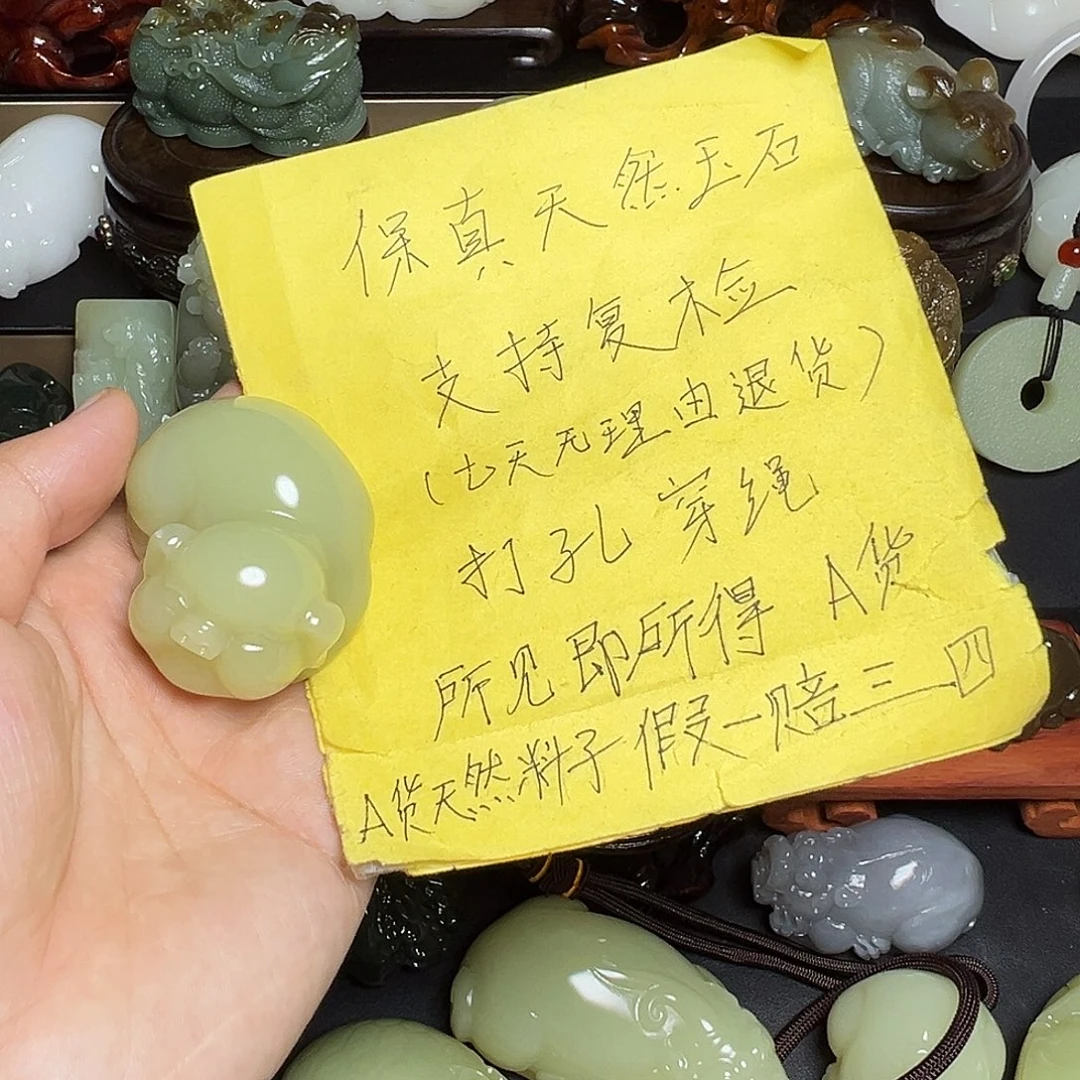 保真天然玉石
支持复检
(七天无理由退货)
打孔穿绳
所见即所得 A货
A货天然料子假一赔三 四